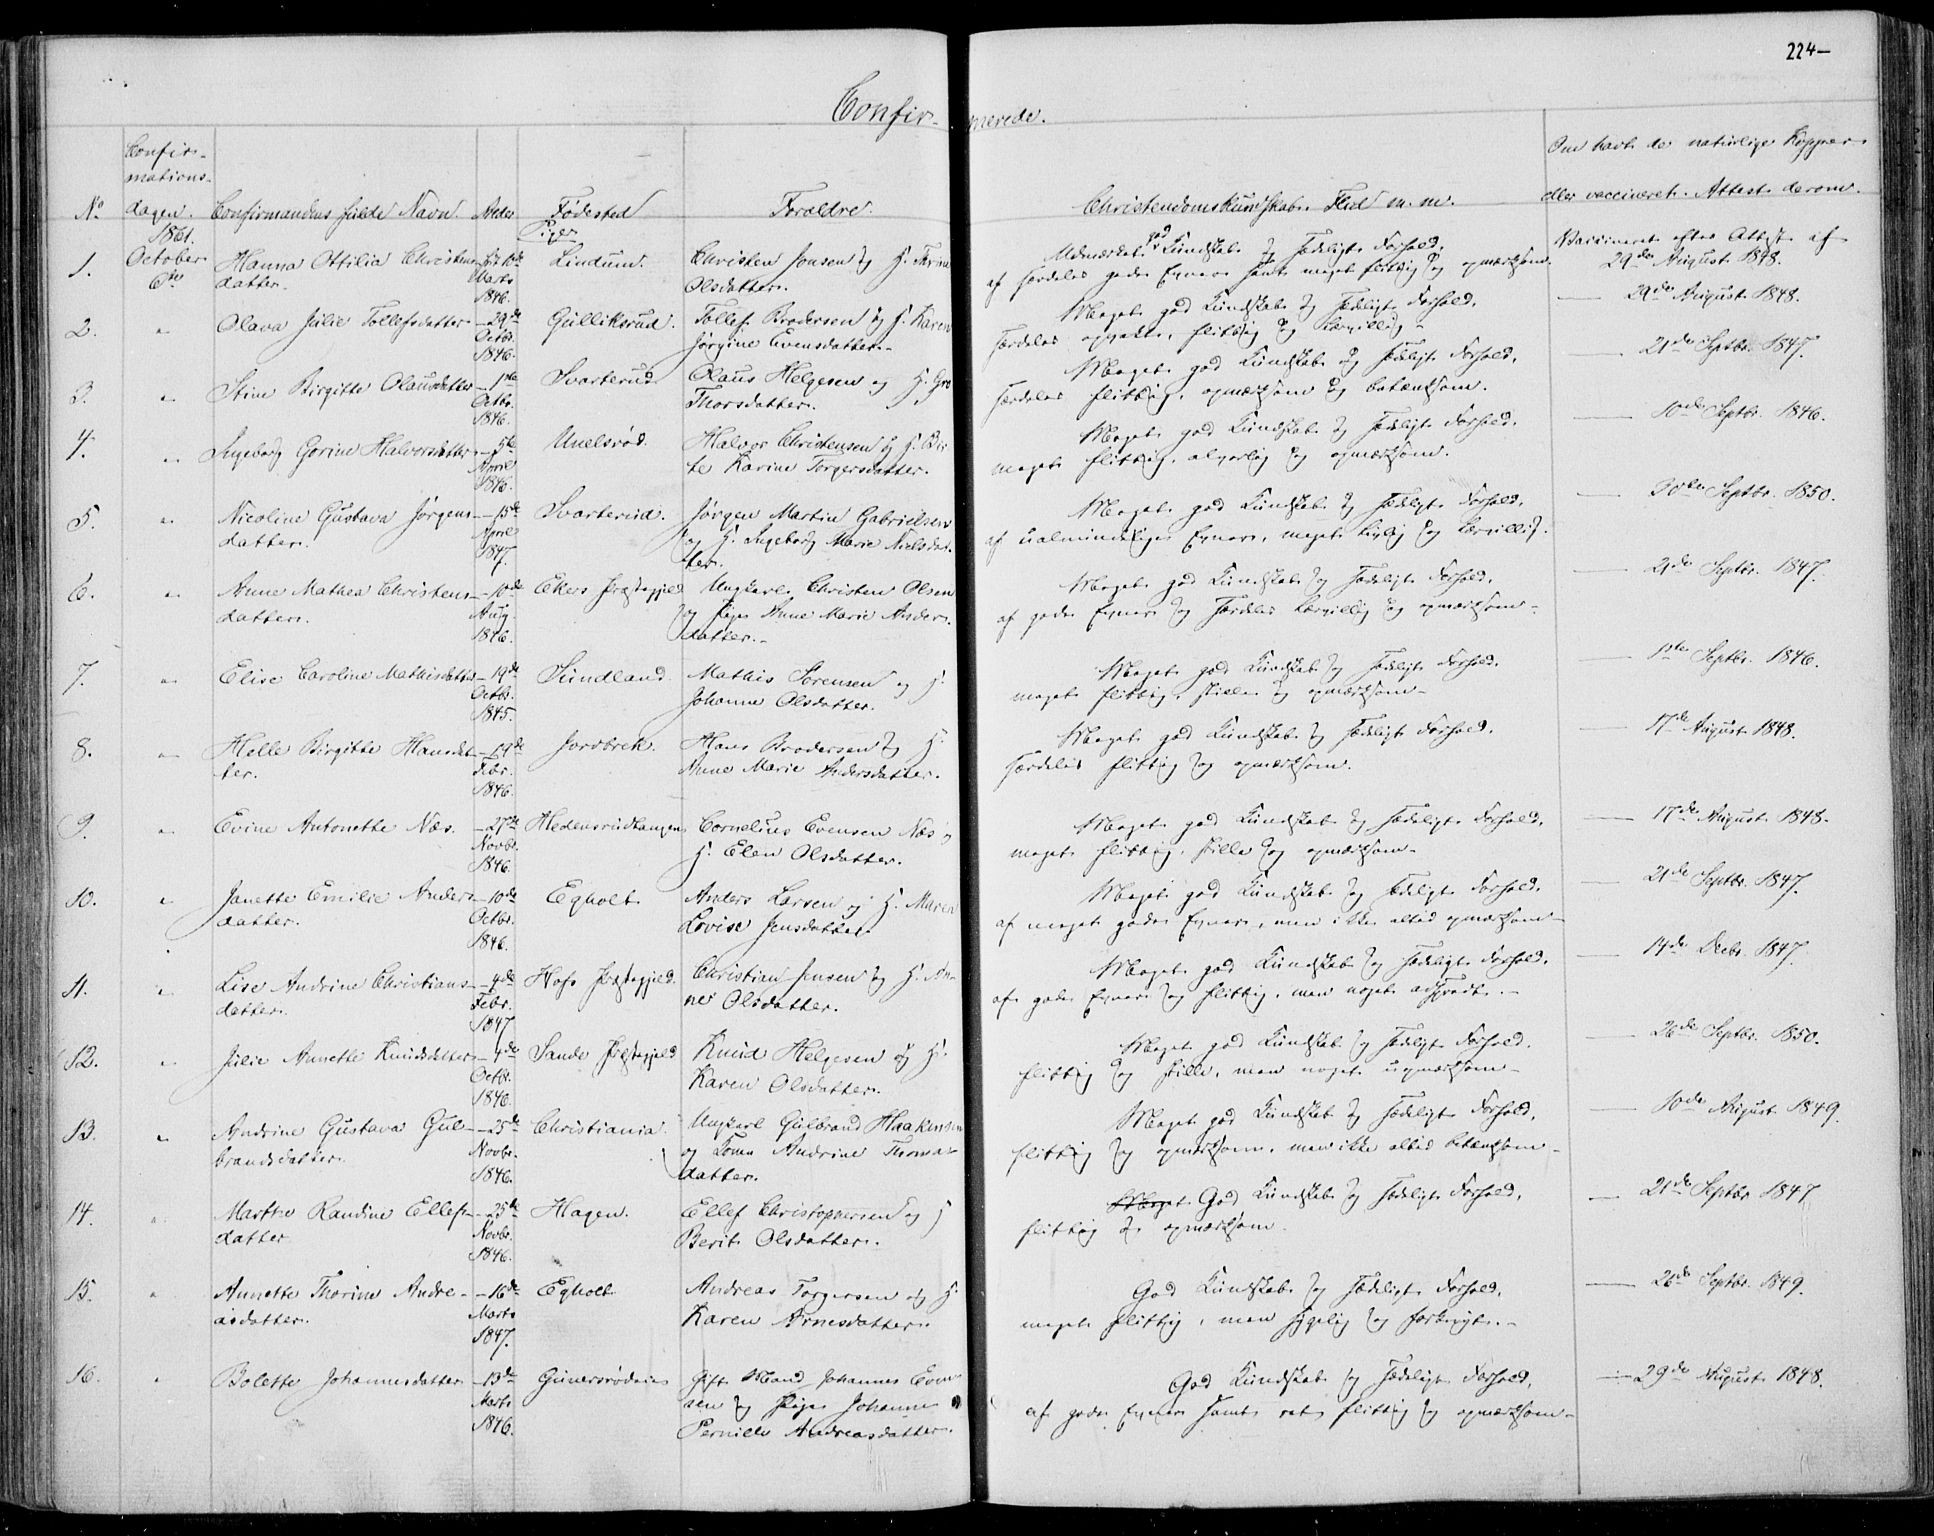 224-
Confir-merede.
Confir-
mations-
dagen.
No
Confirmandens fulde Navn.
Alder
Fødested
Forældre.
Christendomskundskab. Flid m. m.
Om havt de naturlige Kopper
eller vaccineret. Attest derom.
1861.
Piger
1. October 6te Hanna Ottilia Christens- Marts Lindum. Christen Jonsen og H.
datter. 1846. Olsdatter.
Udmærket god Kundskab og sædeligt Forhold,
af særdeles gode Evner samt meget flittig og opmærksom.
Vaccineret efter Attest af
29de August 1848.
2. " Olava Julie Tollefsdatter - 29de Gulliksrud. Tollef Brodersen og H. Karen
Octbr. 1846. Jørgine Evensdatter.
Meget god Kundskab og sædeligt Forhold,
særdeles opvakt, flittig og lærvillig-
— 29de August 1848.
3. " Stine Birgitte Olausdatter - 1ste Svarterud. Olaus Helgesen og H. Gro
Octbr. 1846. Thorsdatter.
Meget god Kundskab og sædeligt Forhold,
særdeles flittig, opmærksom og betænksom.
— 21de Septbr. 1847.
4. " Ingeborg Gorine Halvorsdatter - 5te Unelsrød. Halvor Christensen og H. Bir-
April 1846. te Karine Torgersdatter.
Meget god Kundskab og sædeligt Forhold,
meget flittig, alvorlig og opmærksom.
— 10de Septbr. 1846.
5. " Nicoline Gustava Jørgens- - 15de Svarterud. Jørgen Martin Gabrielsen
datter. April 1847. og H. Ingeborg Marie Nielsdat-
ter.
Meget god Kundskab og sædeligt Forhold,
af ualmindelige Evner, meget livlig og lærvillig.
— Septbr. 1850.
6. " Anne Mathea Christens- - 10de Ekers Præstegjeld Ungkarl Christen Olsen
datter. Aug. 1846. og Pige Anne Marie Anders-
datter.-
Meget god Kundskab og sædeligt Forhold,
af gode Evner og særdeles lærvillig og opmærksom-
— 21de Septbr. 1847.
7. " Elise Caroline Mathisdatter - 19de Sundland. Mathis Sørensen og H.
Octbr. 1845. Johanne Olsdatter.
Meget god Kundskab og sædeligt Forhold,
meget flittig, stille og opmærksom-
— 1ste Septbr. 1846.
8. " Helle Birgitte Hansdat- - 19de Jordbrek. Hans Brodersen og H.
ter. Febr. 1846. Anne Marie Andersdatter.
Meget god Kundskab og sædeligt Forhold,
særdeles flittig og opmærksom.
— 17de August 1848.
9. " Evine Antonette Næs. - 27de Hedensrudtangen Cornelius Evensen Næs og
Novbr. 1846. H. Elen Olsdatter.
Meget god Kundskab og sædeligt Forhold,
meget flittig, stille og opmærksom-
— 17de August 1848.
10. " Janette Emilie Anders- - 10de Egholt Anders Larsen og H. Maren
datter. Octbr. 1846. Lovise Jensdatter
Meget god Kundskab og sædeligt Forhold,
af meget gode Evner, men ikke altid opmærksom-
— 21de Septbr. 1847.
11. " Lise Andrine Christians- - 4de Hofs Præstegjeld. Christian Jensen og H. An-
datter. Febr. 1847 ne Olsdatter.
Meget god Kundskab og sædeligt Forhold,
af gode Evner og flittig, men noget adspredt.-
— 14de Decbr. 1847.
12. " Julie Annette Knudsdatter - 4de Sande Præstegjeld Knud Helgesen og H.
Octbr. 1846. Karen Olsdatter.
Meget god Kundskab og sædeligt Forhold,
flittig og stille, men noget uopmærksom-
— 26de Septbr. 1850.
13. " Andrine Gustava Gul- - 25de Christiania. Ungkarl Gulbrand Haakensen
brandsdatter. Novbr. 1846. og Kone Andrine Thomas-
datter.
Meget god Kundskab og sædeligt Forhold,
flittig og opmærksom, men ikke altid betænksom-
— 10de August 1849.
14. " Marthe Randine Ellefs- - 25de Hagen. Ellef Christophersen og H
datter Novbr. 1846. Berit Olsdatter.
Meget God Kundskab og sædeligt Forhold,
flittig og opmærksom.
— 21de Septbr 1847
15. " Annette Thorine Andre- - 16de Egholt Andreas Torgersen og H.
asdatter. Marts 1847. Karen Arnesdatter.
God Kundskab og sædeligt Forhold,
meget flittig, men sygelig og
— 26de Septbr. 1849.
16. " Bolette Johannesdatter - 13de Gunersrødeie Gift Mand Johannes Even-
Marts 1846. sen og Pige Johanne
Pernille Andreasdatter.
God Kundskab og sædeligt Forhold,
af gode Evner samt ret flittig og opmærksom-
— 29de August 1848.